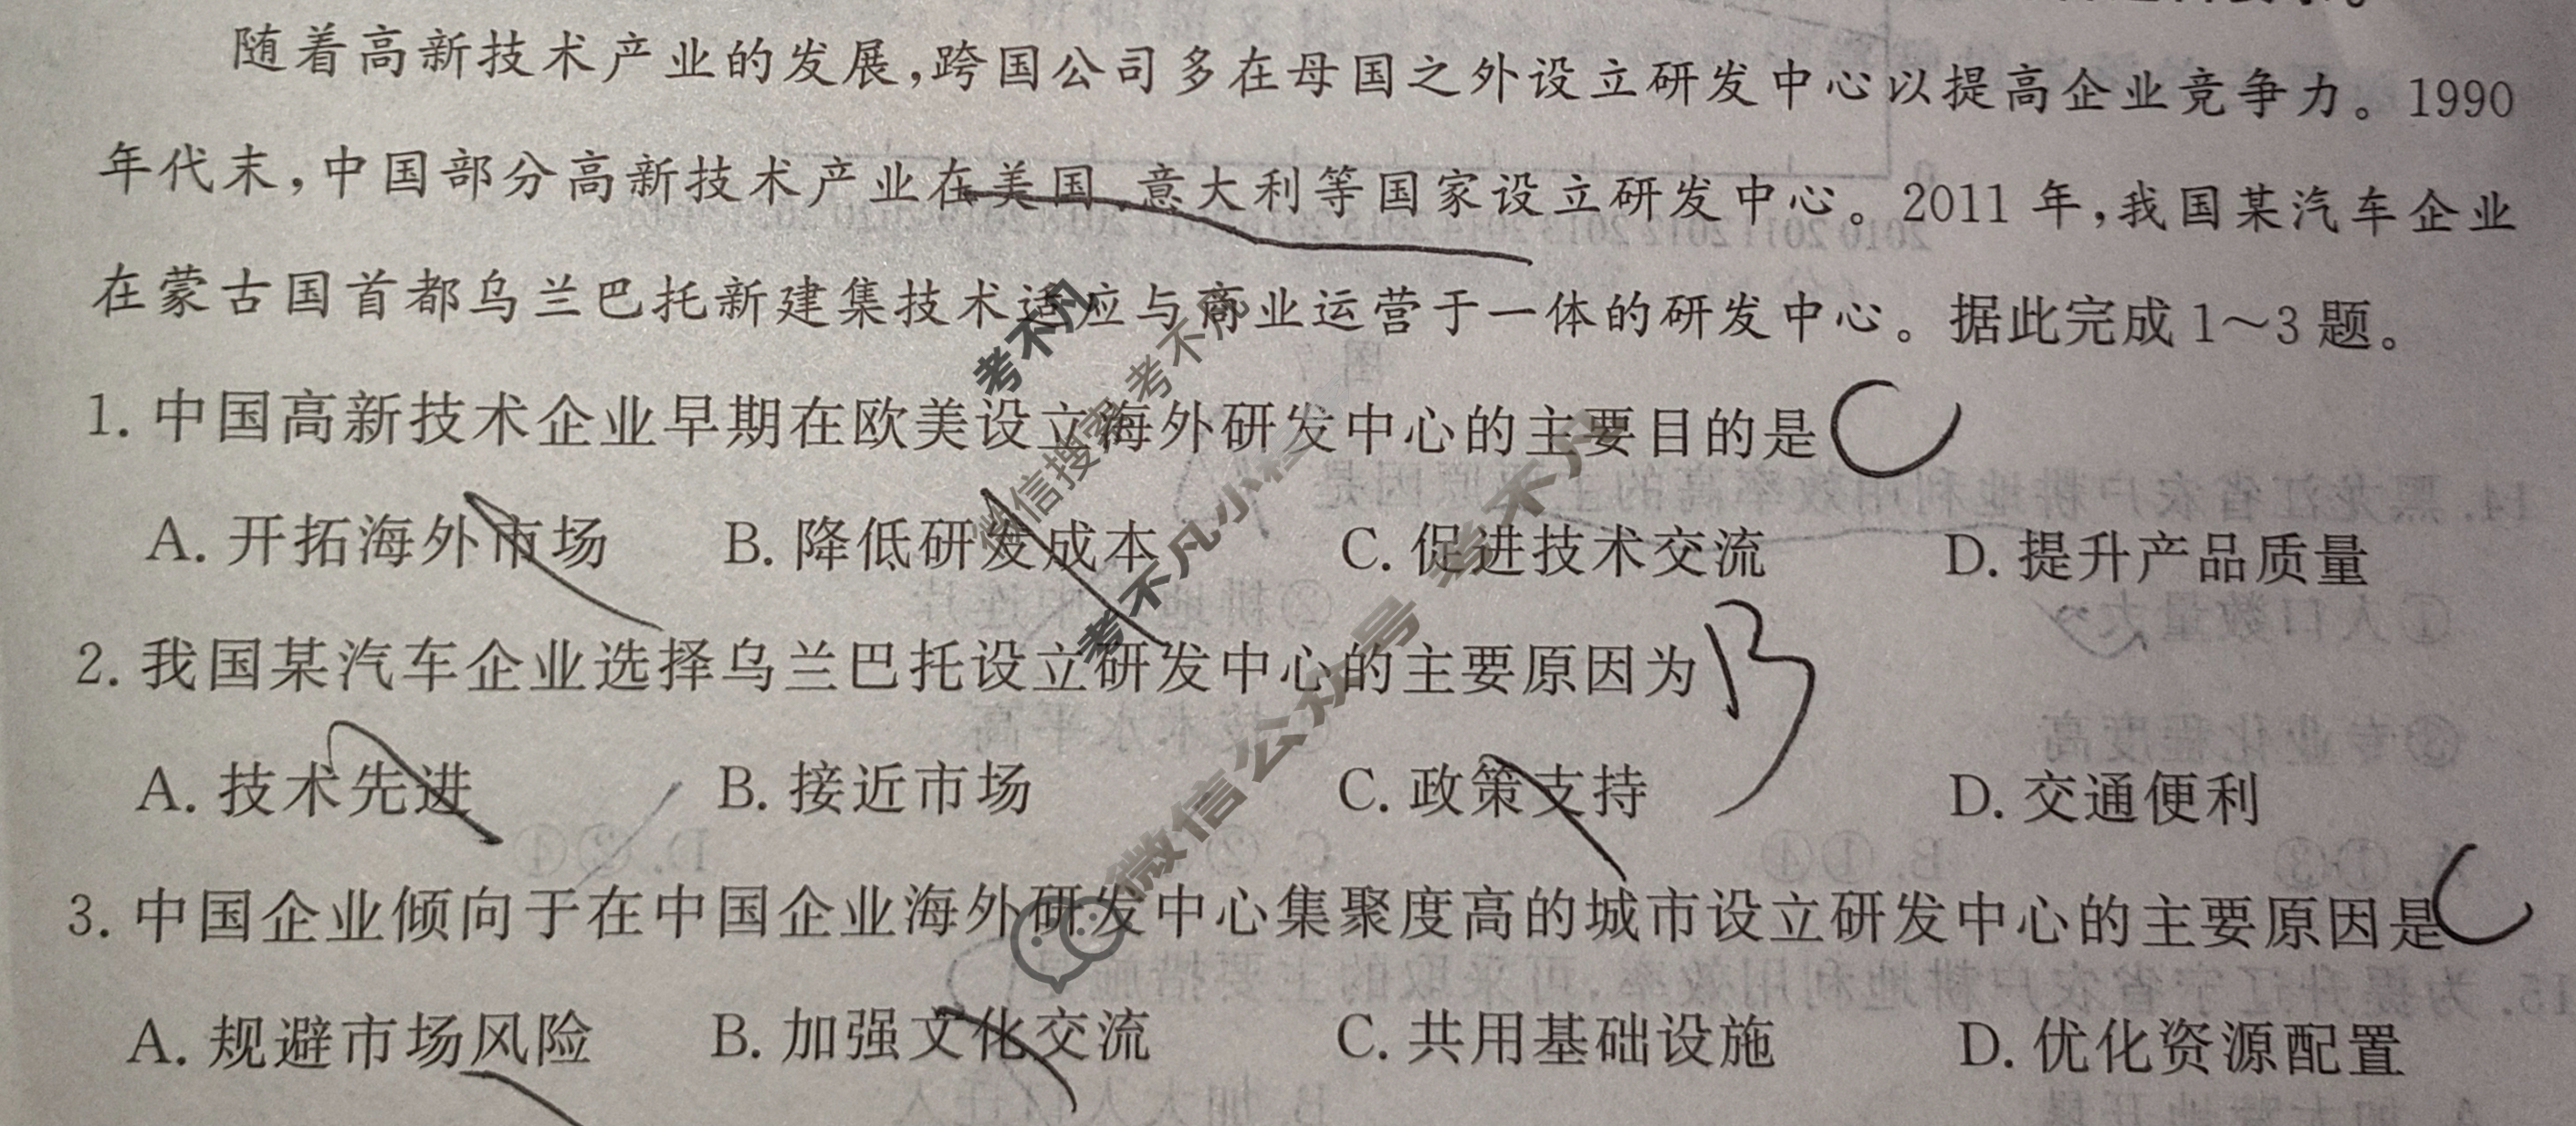 随着高新技术产业的发展,跨国公司多在母国之外设立研发中心以提高企业竞争力。1990
年代末,中国部分高新技术产业在美国、意大利等国家设立研发中心。2011 年,我国某汽车企业
在蒙古国首都乌兰巴托新建集技术适应与商业运营于一体的研发中心。据此完成 1～3 题。
1. 中国高新技术企业早期在欧美设立海外研发中心的主要目的是 C
A. 开拓海外市场 B. 降低研发成本 C. 促进技术交流 D. 提升产品质量
2. 我国某汽车企业选择乌兰巴托设立研发中心的主要原因为 B
A. 技术先进 B. 接近市场 C. 政策支持 D. 交通便利
3. 中国企业倾向于在中国企业海外研发中心集聚度高的城市设立研发中心的主要原因是 C
A. 规避市场风险 B. 加强文化交流 C. 共用基础设施 D. 优化资源配置
考不凡
微信搜索考不凡
考不凡小程
微信公众号 考不凡